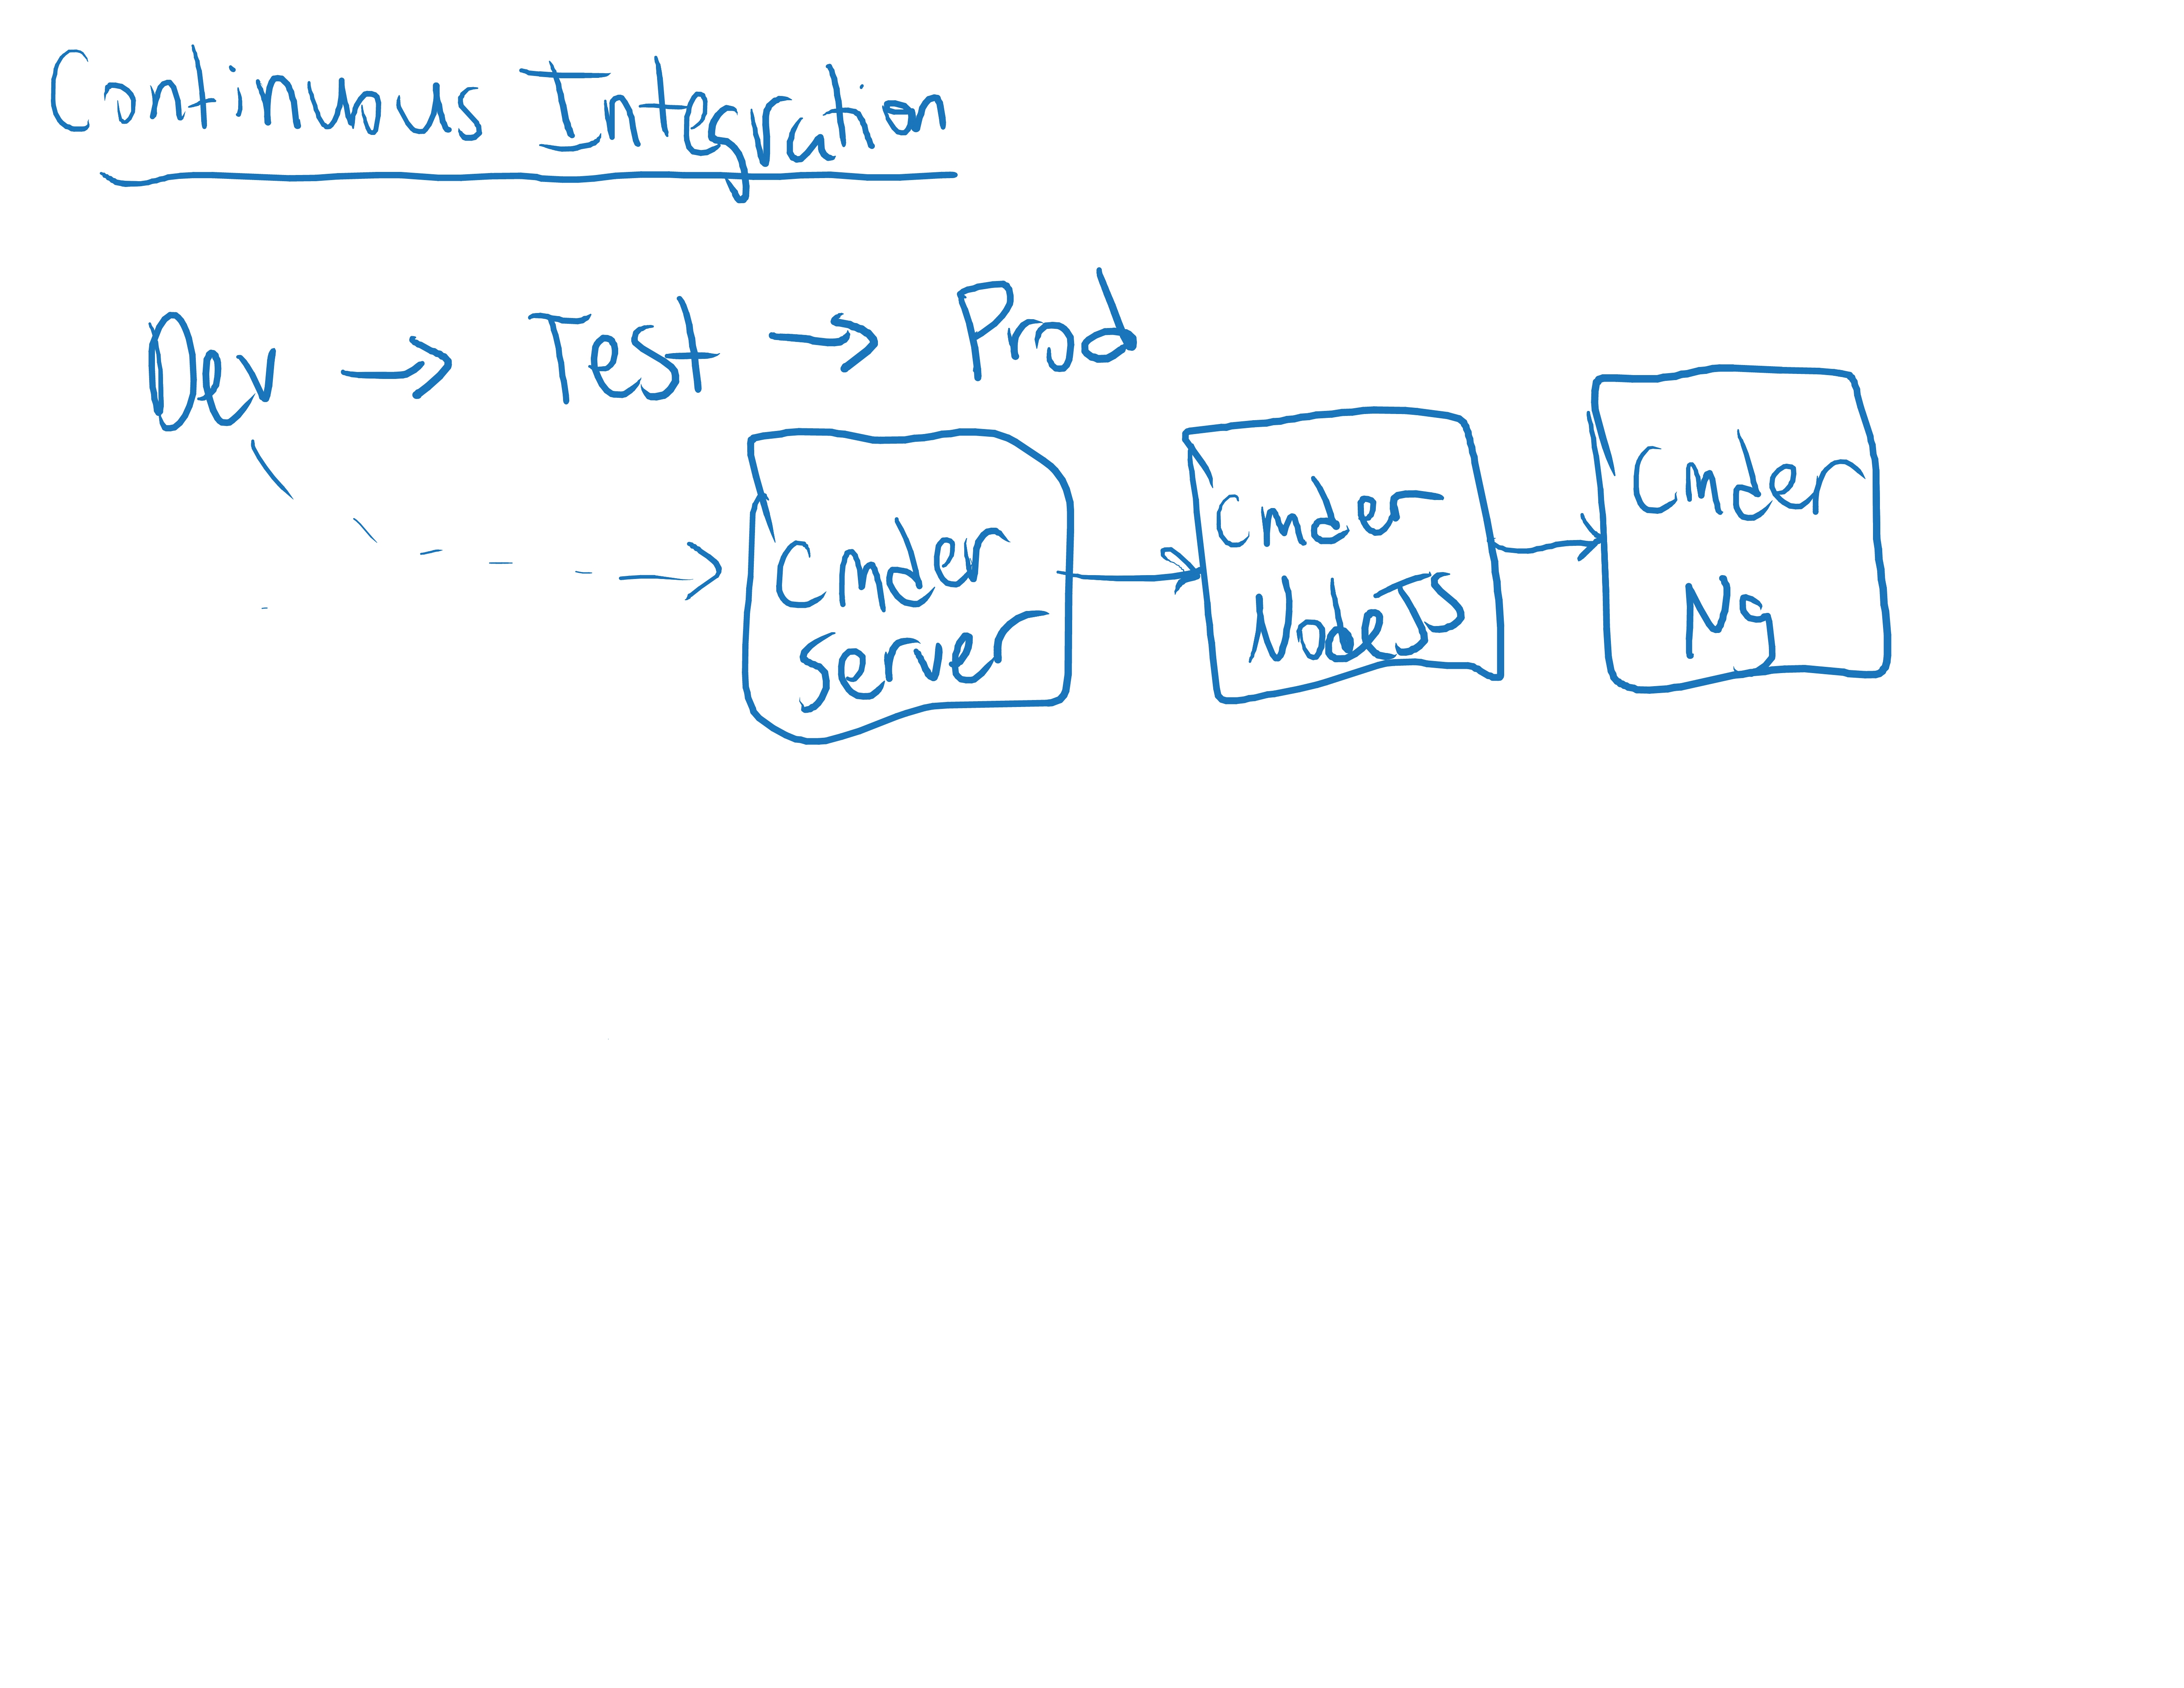 Continuous Integration
Dev → Test → Prod
Cmder
Server
Cmder
NodeJS
Cmder
Ng